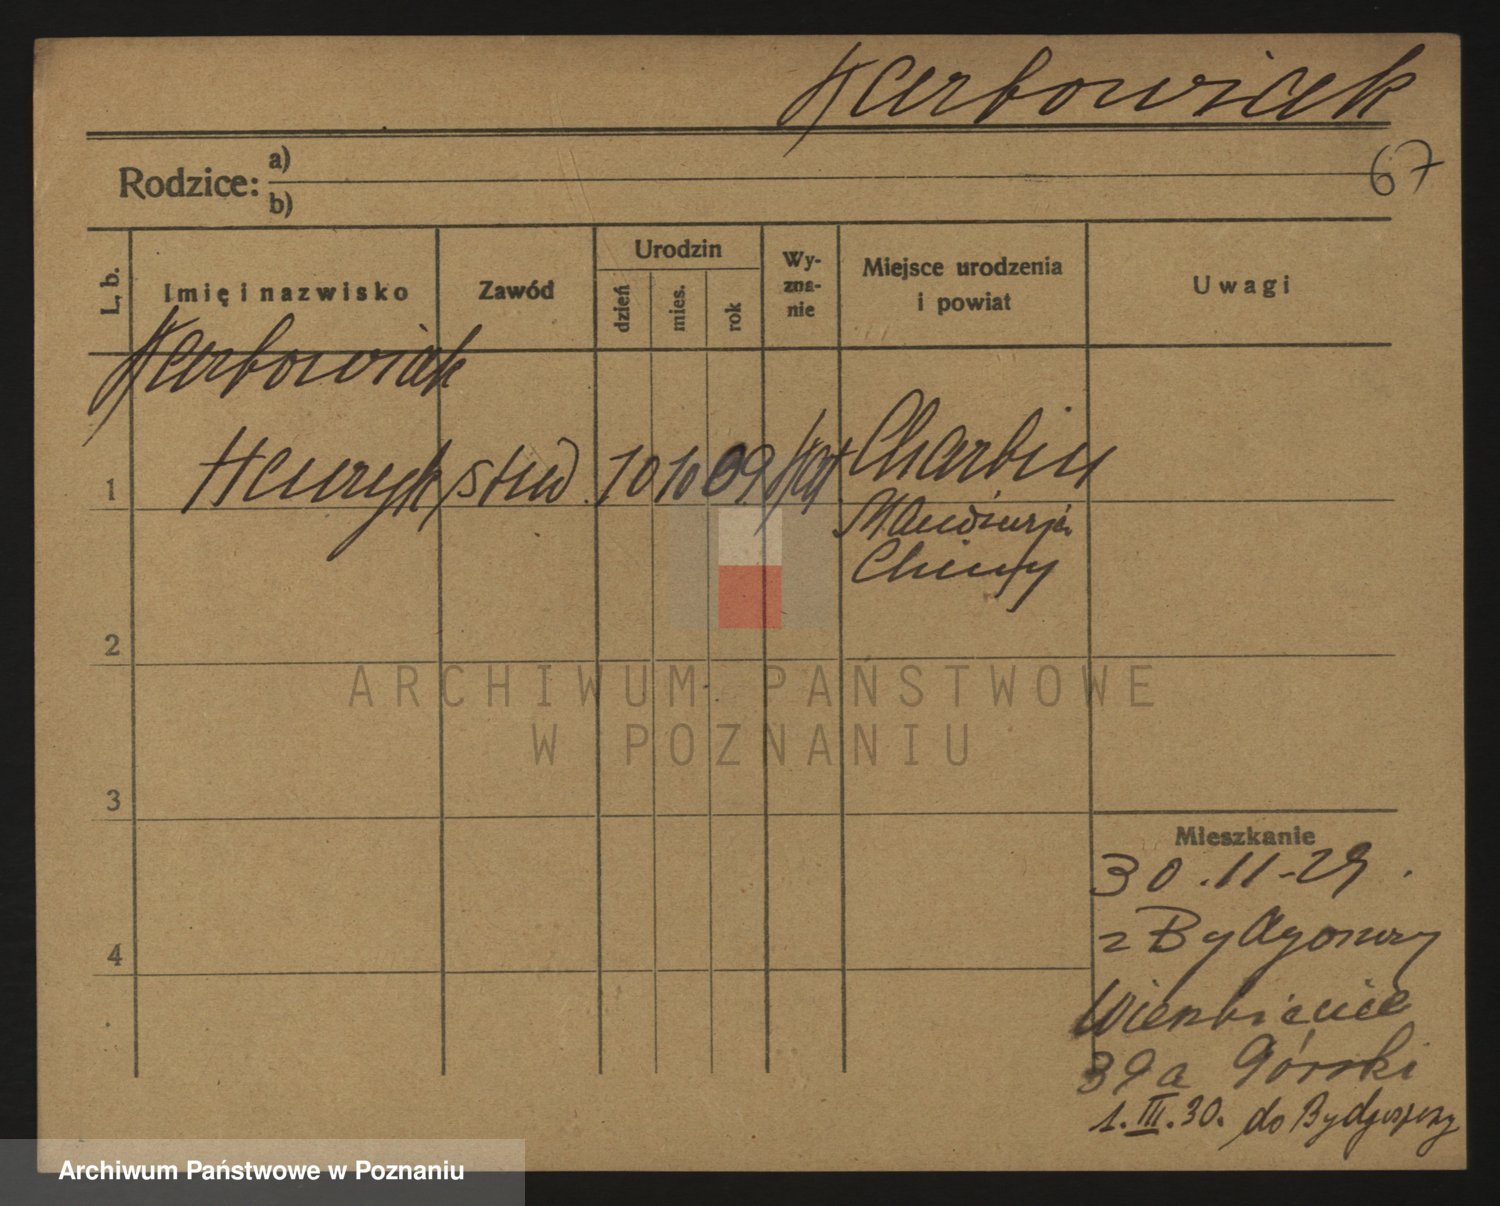 Karbowiak
67
Rodzice: a)
b)
L. b.
Imię i nazwisko
Zawód
Urodzin
dzień
mies.
rok
Wy-
zna-
nie
Miejsce urodzenia
i powiat
Uwagi
Karbowiak
1 Henryk stud. 10 10 09 kat Charbin
Mandżurja
Chiny
2
ARCHIWUM PAŃSTWOWE
W POZNANIU
3
Mieszkanie
30.11-29.
z Bydgoszczy
4
Wierzbięcice
39a Górski
1.III.30. do Bydgoszczy
Archiwum Państwowe w Poznaniu